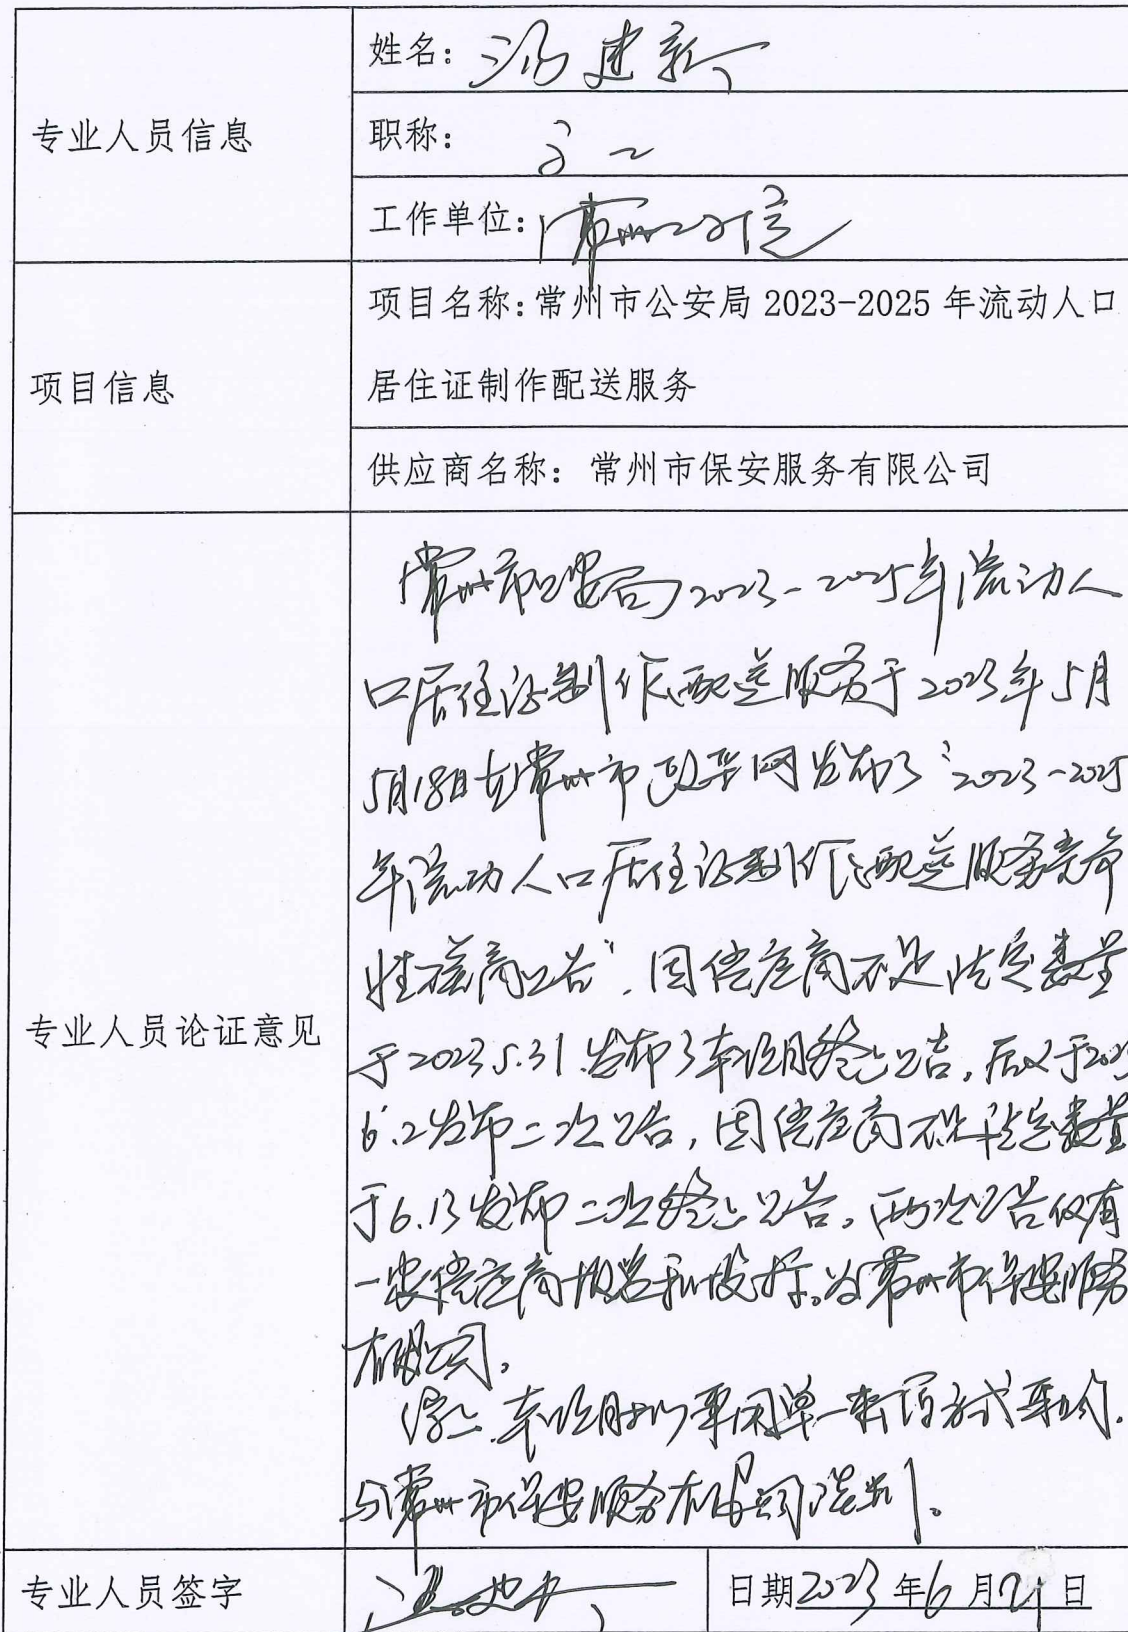 专业人员信息
姓名：汤建新
职称：高工
工作单位：常州工信
项目信息
项目名称：常州市公安局 2023-2025 年流动人口
居住证制作配送服务
供应商名称：常州市保安服务有限公司
专业人员论证意见
常州市公安局2023-2025年流动人
口居住证制作配送服务于2023年5月
5月18日在常州市政采网发布了“2023-2025
年流动人口居住证制作配送服务竞争
性磋商公告”，因供应商不足法定数量
于2023.5.31.发布了本项目终止公告，后又于2023
6.2发布二次公告，因供应商不足法定数量
于6.13发布二次终止公告。两次公告仅有
一家供应商报名和投标。为常州市保安服务
有限公司。
综上，本项目拟采用单一来源方式采购，
与常州市保安服务有限公司谈判。
专业人员签字
日期2023年6月21日